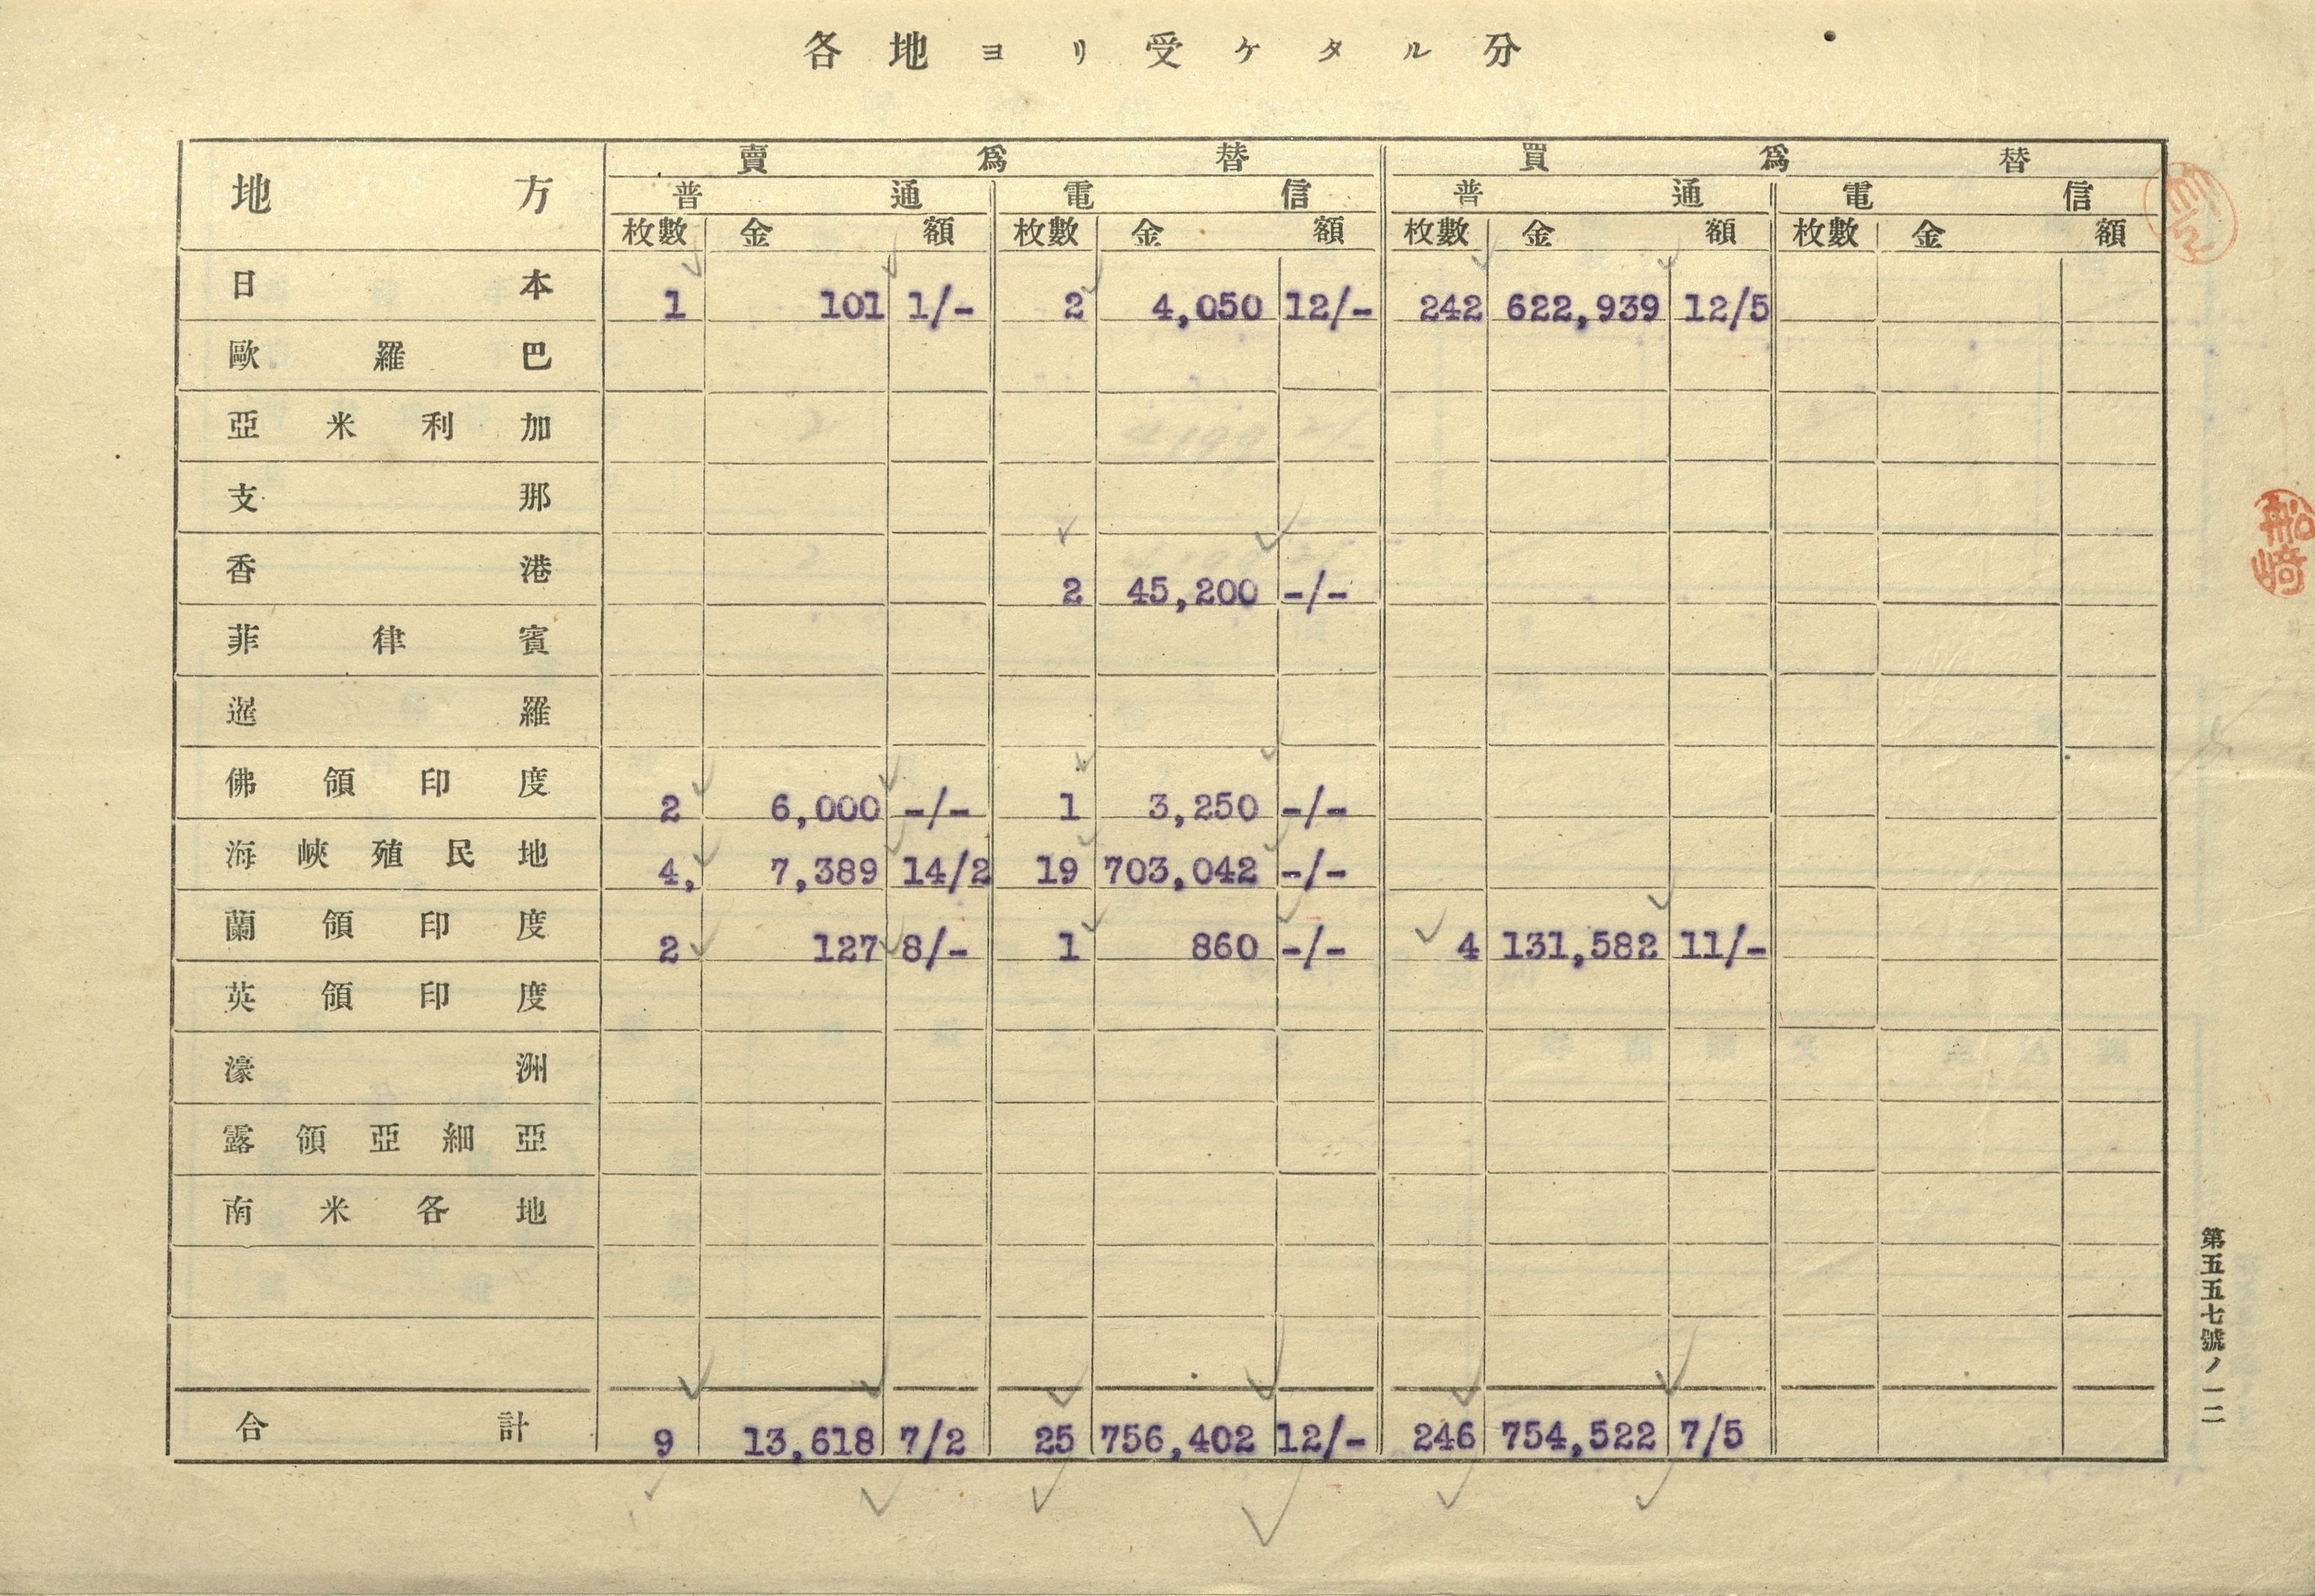 各地ヨリ受ケタル分
地方 賣爲替 買爲替
普通 電信 普通 電信
枚數 金額 枚數 金額 枚數 金額 枚數 金額
日本 1 101 1/- 2 4,050 12/- 242 622,939 12/5
歐羅巴
亞米利加
支那
香港 2 45,200 -/-
菲律賓
暹羅
佛領印度 2 6,000 -/- 1 3,250 -/-
海峽殖民地 4, 7,389 14/2 19 703,042 -/-
蘭領印度 2 127 8/- 1 860 -/- 4 131,582 11/-
英領印度
濠洲
露領亞細亞
南米各地
合計 9 13,618 7/2 25 756,402 12/- 246 754,522 7/5
船崎
第五五七號ノ一二